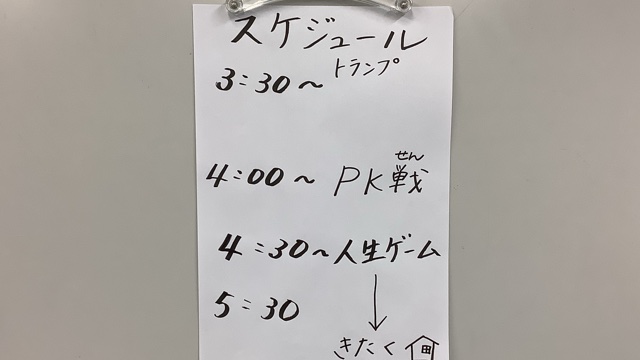 スケジュール
3:30～ トランプ
せん
4:00～ PK戦
4:30～人生ゲーム
5:30
きたく